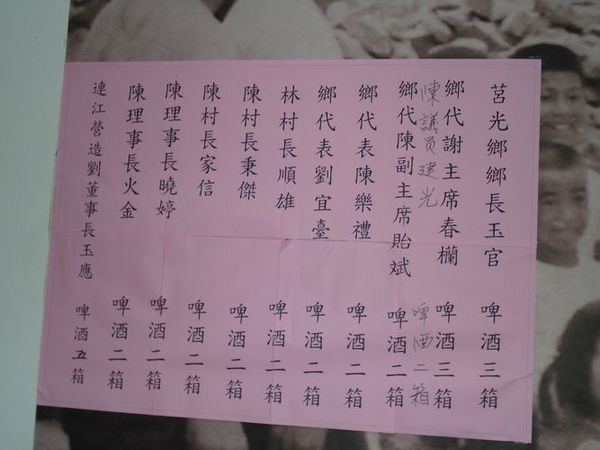 莒光鄉鄉長玉官 啤酒三箱
鄉代謝主席春欄 啤酒三箱
陳議員建光 啤酒二箱
鄉代陳副主席貽斌 啤酒二箱
鄉代表陳樂禮 啤酒二箱
鄉代表劉宜臺 啤酒二箱
林村長順雄 啤酒二箱
陳村長秉傑 啤酒二箱
陳村長家信 啤酒二箱
陳理事長曉婷 啤酒二箱
陳理事長火金 啤酒二箱
連江營造劉董事長玉應 啤酒五箱